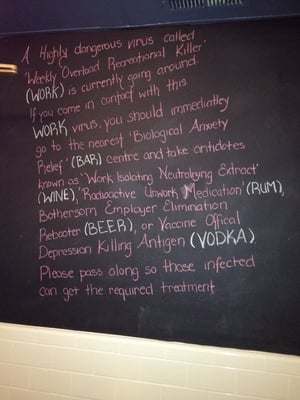 A Highly dangerous virus called
Weekly Overload Recreational Killer
(WORK) is currently going around.
If you come in contact with this
WORK virus, you should immediatley
go to the nearest 'Biological Anxiety
Relief' (BAR) centre and take antidotes
known as 'Work Isolating Neutralizing Extract'
(WINE), 'Radioactive Unwork Medication' (RUM),
Bothersom Employer Elimination
Rebooter (BEER), or Vaccine Offical
Depression Killing Antigen (VODKA)
Please pass along so those infected
can get the required treatment